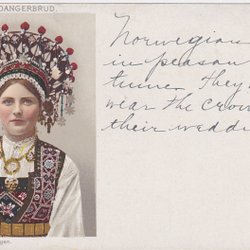 DANGERBRUD.
Norwegian
in peasan
tume. They
wear the crow
their weddi
gen.